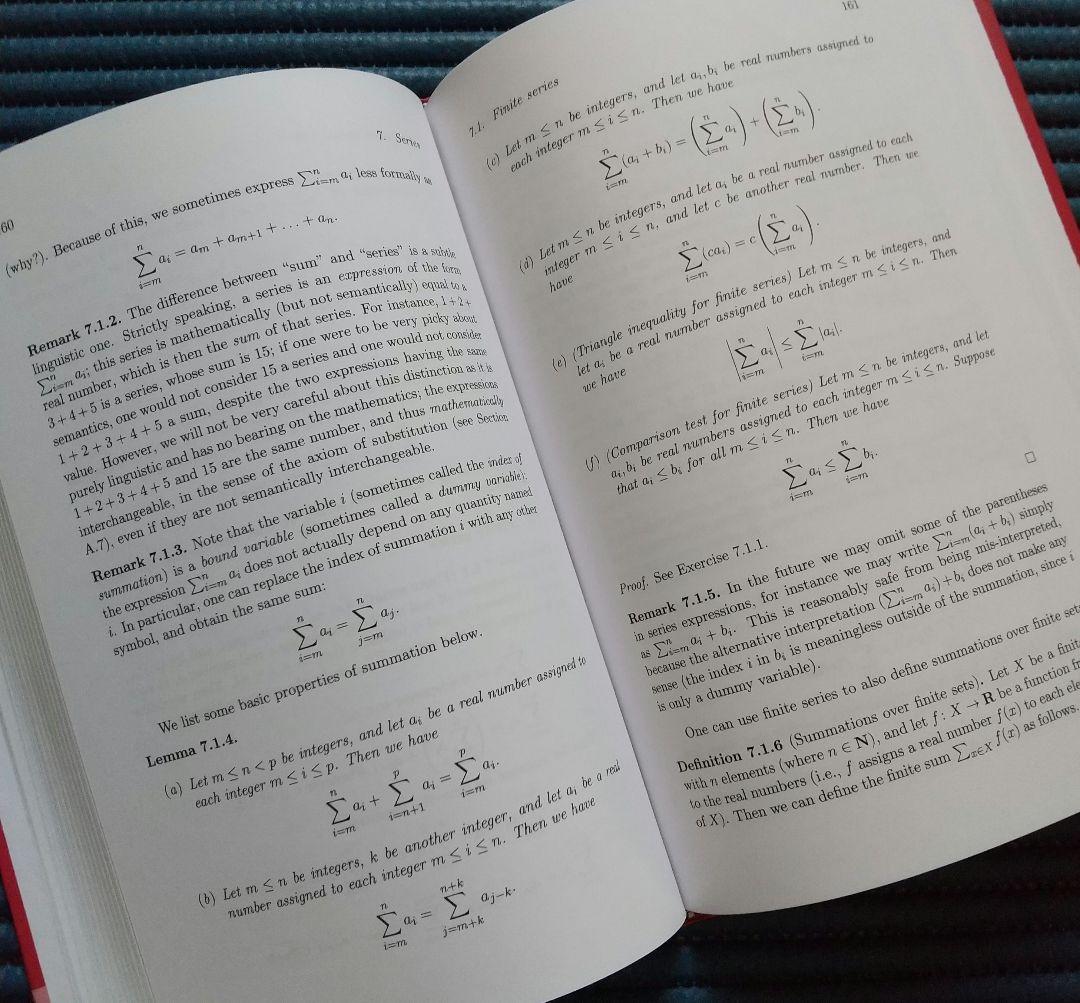 60
7. Series
(why?). Because of this, we sometimes express ∑ⁿᵢ₌ₘ aᵢ less formally as
∑ⁿᵢ₌ₘ aᵢ = aₘ + aₘ₊₁ + . . . + aₙ.
Remark 7.1.2. The difference between “sum” and “series” is a subtle
linguistic one. Strictly speaking, a series is an expression of the form
∑ⁿᵢ₌ₘ aᵢ; this series is mathematically (but not semantically) equal to a
real number, which is then the sum of that series. For instance, 1+2+
3+4+5 is a series, whose sum is 15; if one were to be very picky about
semantics, one would not consider 15 a series and one would not consider
1+2+3+4+5 a sum, despite the two expressions having the same
value. However, we will not be very careful about this distinction as it is
purely linguistic and has no bearing on the mathematics; the expressions
1+2+3+4+5 and 15 are the same number, and thus mathematically
interchangeable, in the sense of the axiom of substitution (see Section
A.7), even if they are not semantically interchangeable.
Remark 7.1.3. Note that the variable i (sometimes called the index of
summation) is a bound variable (sometimes called a dummy variable);
the expression ∑ⁿᵢ₌ₘ aᵢ does not actually depend on any quantity named
i. In particular, one can replace the index of summation i with any other
symbol, and obtain the same sum:
∑ⁿᵢ₌ₘ aᵢ = ∑ⁿⱼ₌ₘ aⱼ.
We list some basic properties of summation below.
Lemma 7.1.4.
(a) Let m ≤ n < p be integers, and let aᵢ be a real number assigned to
each integer m ≤ i ≤ p. Then we have
∑ⁿᵢ₌ₘ aᵢ + ∑ᵖᵢ₌ₙ₊₁ aᵢ = ∑ᵖᵢ₌ₘ aᵢ.
(b) Let m ≤ n be integers, k be another integer, and let aᵢ be a real
number assigned to each integer m ≤ i ≤ n. Then we have
∑ⁿᵢ₌ₘ aᵢ = ∑ⁿ⁺ᵏⱼ₌ₘ₊ₖ aⱼ₋ₖ.
7.1. Finite series
161
(c) Let m ≤ n be integers, and let aᵢ, bᵢ be real numbers assigned to
each integer m ≤ i ≤ n. Then we have
∑ⁿᵢ₌ₘ (aᵢ + bᵢ) = (∑ⁿᵢ₌ₘ aᵢ) + (∑ⁿᵢ₌ₘ bᵢ).
(d) Let m ≤ n be integers, and let aᵢ be a real number assigned to each
integer m ≤ i ≤ n, and let c be another real number. Then we
have
∑ⁿᵢ₌ₘ (caᵢ) = c (∑ⁿᵢ₌ₘ aᵢ).
(e) (Triangle inequality for finite series) Let m ≤ n be integers, and
let aᵢ be a real number assigned to each integer m ≤ i ≤ n. Then
we have
|∑ⁿᵢ₌ₘ aᵢ| ≤ ∑ⁿᵢ₌ₘ |aᵢ|.
(f) (Comparison test for finite series) Let m ≤ n be integers, and let
aᵢ, bᵢ be real numbers assigned to each integer m ≤ i ≤ n. Suppose
that aᵢ ≤ bᵢ for all m ≤ i ≤ n. Then we have
∑ⁿᵢ₌ₘ aᵢ ≤ ∑ⁿᵢ₌ₘ bᵢ.
Proof. See Exercise 7.1.1. □
Remark 7.1.5. In the future we may omit some of the parentheses
in series expressions, for instance we may write ∑ⁿᵢ₌ₘ(aᵢ + bᵢ) simply
as ∑ⁿᵢ₌ₘ aᵢ + bᵢ. This is reasonably safe from being mis-interpreted,
because the alternative interpretation (∑ⁿᵢ₌ₘ aᵢ) + bᵢ does not make any
sense (the index i in bᵢ is meaningless outside of the summation, since i
is only a dummy variable).
One can use finite series to also define summations over finite sets
Definition 7.1.6 (Summations over finite sets). Let X be a
with n elements (where n ∈ N), and let f : X → R be a function
to the real numbers (i.e., f assigns a real number f(x) to each
of X). Then we can define the finite sum ∑ₓ∈X f(x) as follows.